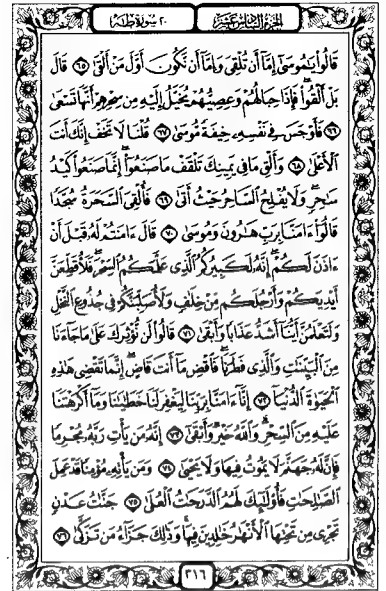 الجزء السادس عشر
٢٠ سورة طه
قَالُوا۟ يَٰمُوسَىٰٓ إِمَّآ أَن تُلْقِىَ وَإِمَّآ أَن نَّكُونَ أَوَّلَ مَنْ أَلْقَىٰ ٦٥ قَالَ
بَلْ أَلْقُوا۟ فَإِذَا حِبَالُهُمْ وَعِصِيُّهُمْ يُخَيَّلُ إِلَيْهِ مِن سِحْرِهِمْ أَنَّهَا تَسْعَىٰ
٦٦ فَأَوْجَسَ فِى نَفْسِهِۦ خِيفَةً مُّوسَىٰ ٦٧ قُلْنَا لَا تَخَفْ إِنَّكَ أَنتَ
ٱلْأَعْلَىٰ ٦٨ وَأَلْقِ مَا فِى يَمِينِكَ تَلْقَفْ مَا صَنَعُوٓا۟ إِنَّمَا صَنَعُوا۟ كَيْدُ
سَٰحِرٍ وَلَا يُفْلِحُ ٱلسَّاحِرُ حَيْثُ أَتَىٰ ٦٩ فَأُلْقِىَ ٱلسَّحَرَةُ سُجَّدًا
قَالُوٓا۟ ءَامَنَّا بِرَبِّ هَٰرُونَ وَمُوسَىٰ ٧٠ قَالَ ءَامَنتُمْ لَهُۥ قَبْلَ أَنْ
ءَاذَنَ لَكُمْ إِنَّهُۥ لَكَبِيرُكُمُ ٱلَّذِى عَلَّمَكُمُ ٱلسِّحْرَ فَلَأُقَطِّعَنَّ
أَيْدِيَكُمْ وَأَرْجُلَكُم مِّنْ خِلَٰفٍ وَلَأُصَلِّبَنَّكُمْ فِى جُذُوعِ ٱلنَّخْلِ
وَلَتَعْلَمُنَّ أَيُّنَآ أَشَدُّ عَذَابًا وَأَبْقَىٰ ٧١ قَالُوا۟ لَن نُّؤْثِرَكَ عَلَىٰ مَا جَآءَنَا
مِنَ ٱلْبَيِّنَٰتِ وَٱلَّذِى فَطَرَنَا فَٱقْضِ مَآ أَنتَ قَاضٍ إِنَّمَا تَقْضِى هَٰذِهِ
ٱلْحَيَوٰةَ ٱلدُّنْيَآ ٧٢ إِنَّآ ءَامَنَّا بِرَبِّنَا لِيَغْفِرَ لَنَا خَطَٰيَٰنَا وَمَآ أَكْرَهْتَنَا
عَلَيْهِ مِنَ ٱلسِّحْرِ وَٱللَّهُ خَيْرٌ وَأَبْقَىٰٓ ٧٣ إِنَّهُۥ مَن يَأْتِ رَبَّهُۥ مُجْرِمًا
فَإِنَّ لَهُۥ جَهَنَّمَ لَا يَمُوتُ فِيهَا وَلَا يَحْيَىٰ ٧٤ وَمَن يَأْتِهِۦ مُؤْمِنًا قَدْ عَمِلَ
ٱلصَّٰلِحَٰتِ فَأُو۟لَٰٓئِكَ لَهُمُ ٱلدَّرَجَٰتُ ٱلْعُلَىٰ ٧٥ جَنَّٰتُ عَدْنٍ
تَجْرِى مِن تَحْتِهَا ٱلْأَنْهَٰرُ خَٰلِدِينَ فِيهَا وَذَٰلِكَ جَزَآءُ مَن تَزَكَّىٰ ٧٦
٣١٦